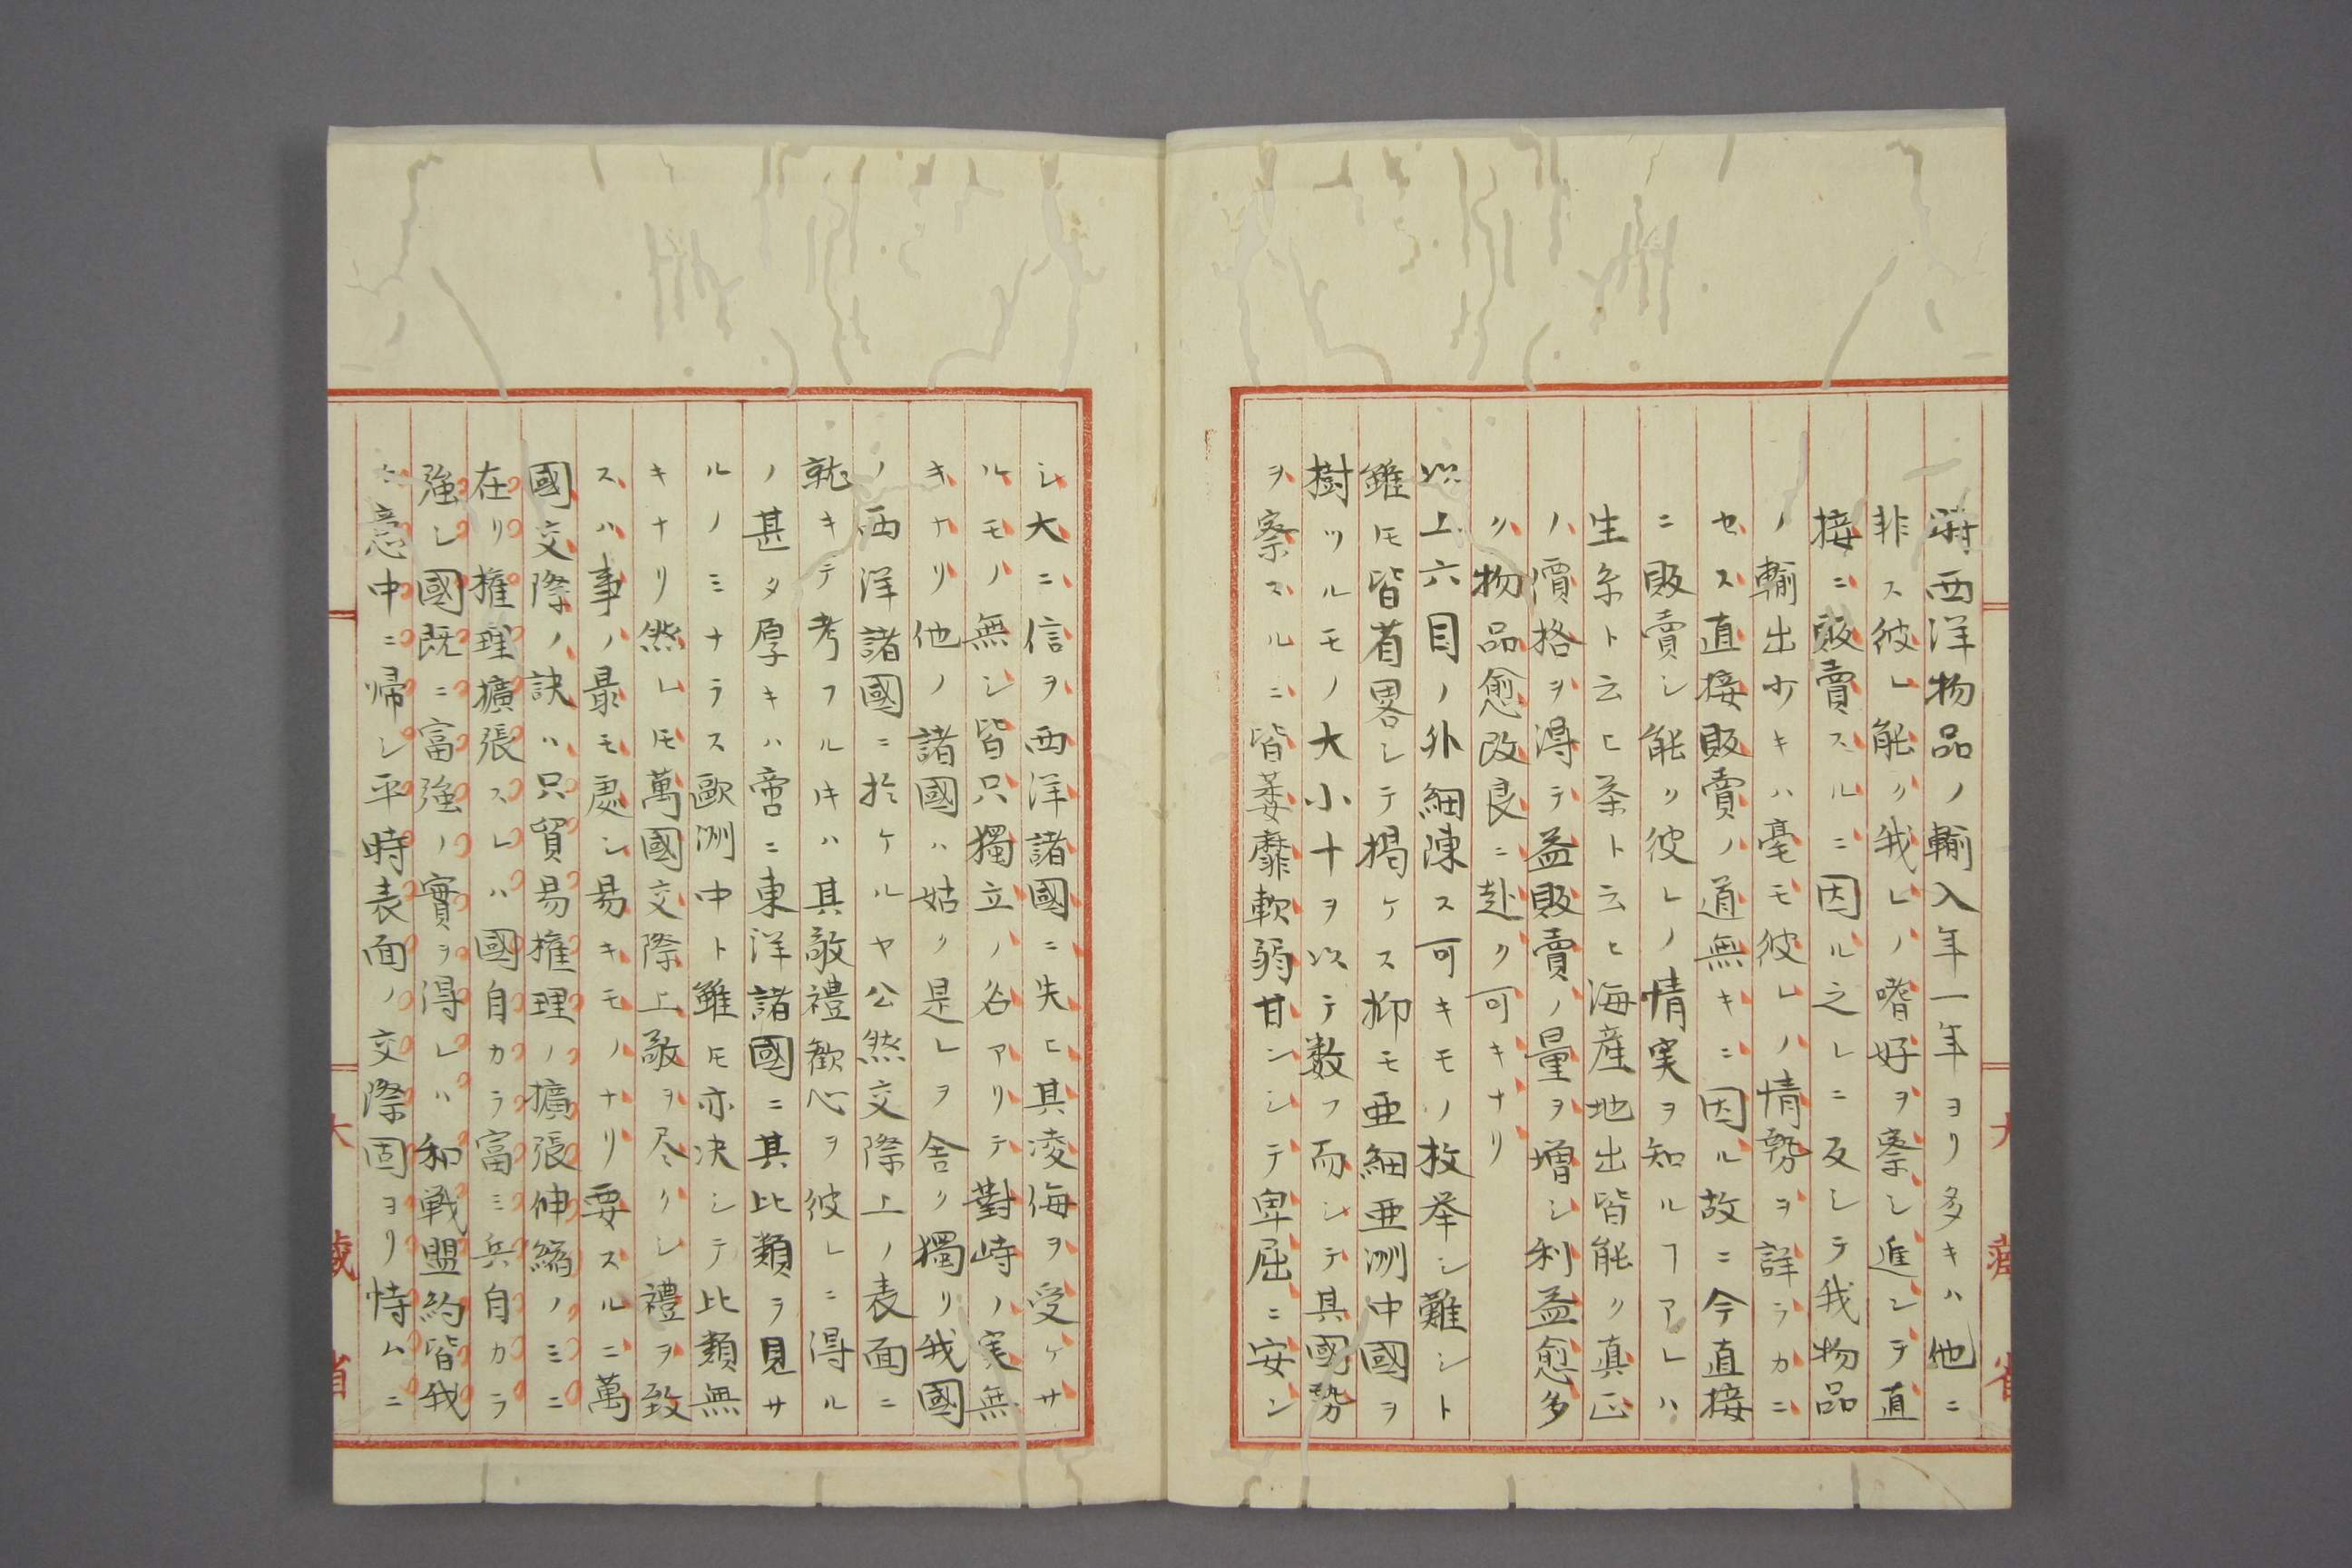 西洋物品ノ輸入年一年ヨリ多キハ他ニ
非ス彼レ能ク我レノ嗜好ヲ察シ進ンテ直
接ニ販賣スルニ因ル之レニ反シテ我物品
ノ輸出少キハ毫モ彼レノ情勢ヲ詳ラカニ
セス直接販賣ノ道無キニ因ル故ニ今直接
ニ販賣シ能ク彼レノ情実ヲ知ルヿアレハ
生糸ト云ヒ茶ト云ヒ海産地出皆能ク真正
ノ價格ヲ得テ益販賣ノ量ヲ増シ利益愈多
ク物品愈改良ニ赴ク可キナリ
以上六目ノ外細陳ス可キモノ枚挙シ難シト
雖𪜈皆省畧シテ掲ケス抑モ亜細亜洲中國ヲ
樹ツルモノ大小十ヲ以テ数フ而シテ其國勢
ヲ察スルニ皆萎靡軟弱甘ンシテ卑屈ニ安ン
シ大ニ信ヲ西洋諸國ニ失ヒ其凌侮ヲ受ケサ
ルモノ無シ皆只獨立ノ名アリテ對峙ノ実無
キナリ他ノ諸國ハ姑ク是レヲ舎ク獨リ我國
ノ西洋諸國ニ於ケルヤ公然交際上ノ表面ニ
就キテ考フル𪜈ハ其敬禮歓心ヲ彼レニ得ル
ノ甚タ厚キハ啻ニ東洋諸國ニ其比類ヲ見サ
ルノミナラス歐洲中ト雖𪜈亦决シテ比類無
キナリ然レ𪜈萬國交際上敬ヲ尽クシ禮ヲ致
スハ事ノ最モ處シ易キモノナリ要スルニ萬
國交際ノ訣ハ只貿易権理ノ擴張伸縮ノミニ
在リ権理擴張スレハ國自カラ富ミ兵自カラ
強シ國既ニ富強ノ實ヲ得レハ和戦盟約皆我
意中ニ帰シ平時表面ノ交際固ヨリ恃ムニ
大藏省